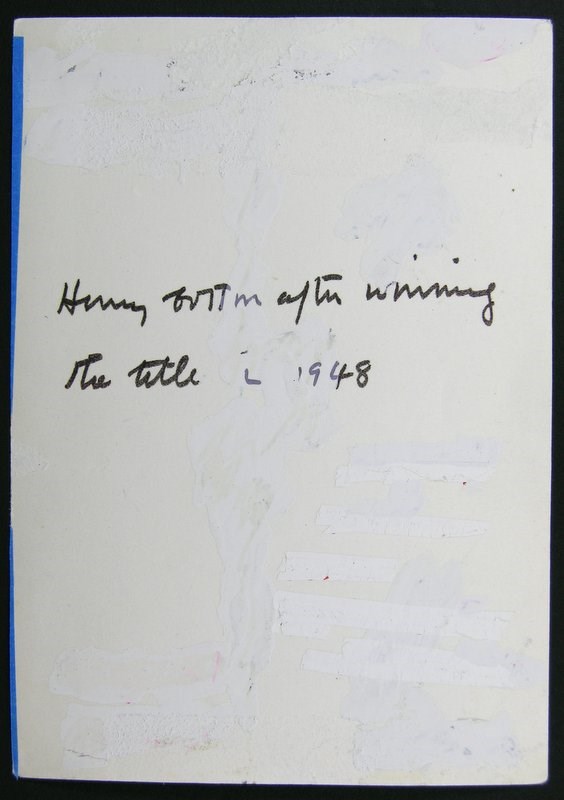 Henry Cotton after winning
the title in 1948